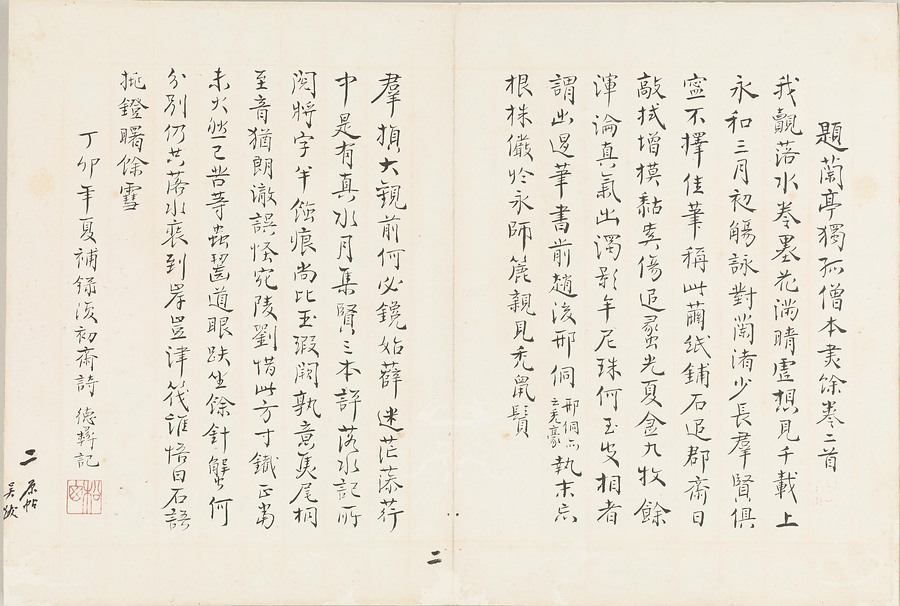 題蘭亭獨孤僧本燼餘卷二首
我覿落水卷墨花滿晴虛想見千載上
永和三月初觴詠對蘭渚少長羣賢俱
寧不擇佳筆稱此繭紙鋪石追郡齋日
敲拭增摸黏傷追蠡光夏金九牧餘
渾淪真氣出濁影牟尼珠何王皮相者
謂出退筆書前趙後邢侗邢侗亦云禿豪執末忘
根株儼於永師簏親見禿鼠鬚
二
羣損大觀前何必鐫始薛迷茫藻荇
中是有真水月集賢三本評落水記所
閱將字半蝕痕尚比玉瑕闕孰意焦尾桐
至音猶朗澈誤怪宛陵劉惜此方寸鐵正當
未火然已嘗等蟲齧道眼趺坐餘針蟹何
分別仍共落水裝到岸豈津筏誰悟白石語
挑鐙曙餘雪
丁卯年夏補錄復初齋詩 德彝記
二 原帖
吳炳